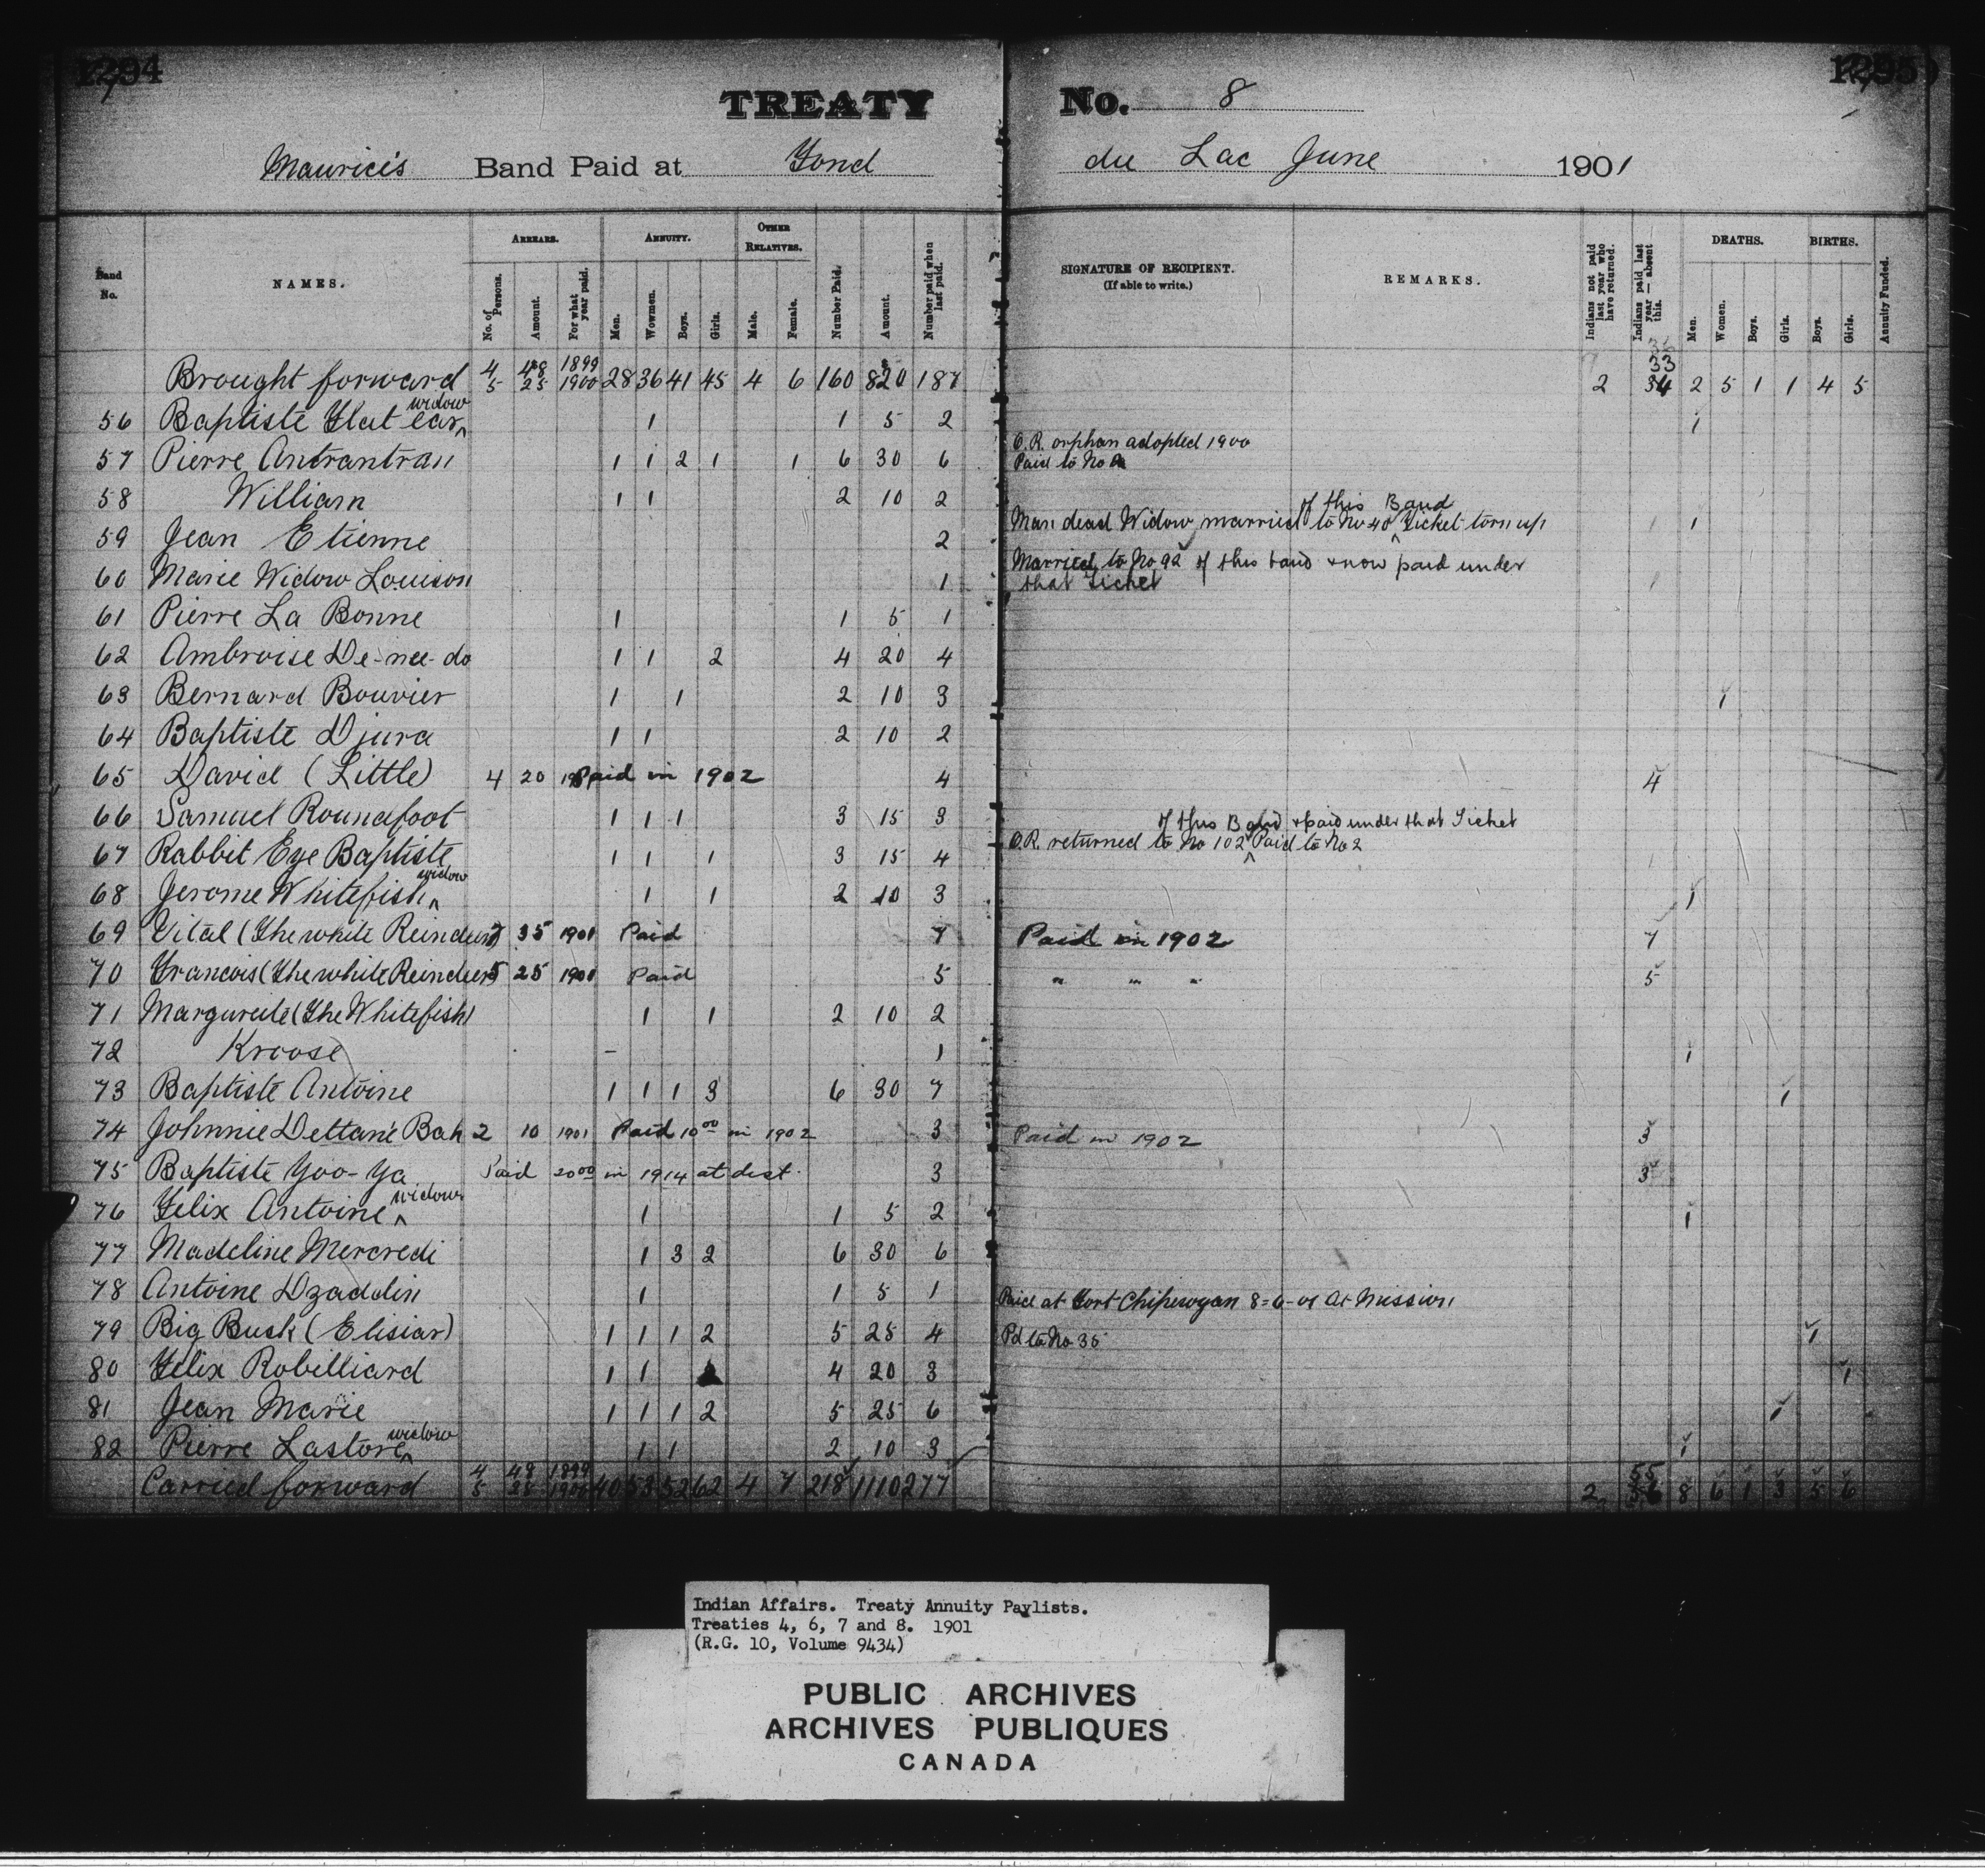 1294
1295
TREATY No. 8
Maurice's Band Paid at Fond du Lac June 1901
Band No. NAMES. ARREARS. ANNUITY. OTHER RELATIVES. Number Paid. Amount. Number paid when last paid. SIGNATURE OF RECIPIENT. (If able to write.) REMARKS. Indians not paid last year who have returned. Indians paid last year — absent this. DEATHS. BIRTHS. Annuity Funded.
No. of Persons. Amount. For what year paid. Men. Wowmen. Boys. Girls. Male. Female. Men. Women. Boys. Girls. Boys. Girls.
Brought forward 4 48 1899 5 25 1900 28 36 41 45 4 6 160 820 187 2 33 34 2 5 1 1 4 5
56 Baptiste Flat ear widow 1 1 5 2 1
57 Pierre Antrantran 1 1 2 1 1 6 30 6 O.R. orphan adopted 1900 Paid to No
58 William 1 1 2 10 2
59 Jean Etienne 2 Man dead Widow married to No 40 of this Band Ticket torn up 1 1
60 Marie Widow Louison 1 Married to No 92 of this band & now paid under that Ticket 1
61 Pierre La Bonne 1 1 5 1
62 Ambroise De-nee-do 1 1 2 4 20 4
63 Bernard Bouvier 1 1 2 10 3 1
64 Baptiste Djura 1 1 2 10 2
65 David (Little) 4 20 Paid in 1902 4 4
66 Samuel Roundfoot 1 1 1 3 15 3
67 Rabbit Eye Baptiste 1 1 1 3 15 4 O.R. returned to No 102 of this Band & paid under that Ticket Paid to No 2 1
68 Jerome Whitefish widow 1 1 2 10 3 1
69 Vital (The white Reindeer) 7 35 1901 Paid 7 Paid in 1902 7
70 Francois (The white Reindeer) 5 25 1901 Paid 5 " " " 5
71 Margureite (The Whitefish) 1 1 2 10 2
72 Kroose – 1 1
73 Baptiste Antoine 1 1 1 3 6 30 7 1
74 Johnnie Dettane Bah 2 10 1901 Paid 10 00 in 1902 3 Paid in 1902 3
75 Baptiste Yoo-Ya Paid 20 00 in 1914 at dist. 3 3
76 Felix Antoine widow 1 1 5 2 1
77 Madeline Mercredi 1 3 2 6 30 6
78 Antoine Dzaddin 1 1 5 1 Paid at Fort Chipewyan 8-6-01 At Mission
79 Big Busk (Elisiar) 1 1 1 2 5 25 4 Pd to No 35 1
80 Felix Robilliard 1 1 4 20 3 1
81 Jean Marie 1 1 1 2 5 25 6 1
82 Pierre Lastore widow 1 1 2 10 3 1
Carried forward 4 48 1899 5 25 1900 40 53 52 62 4 7 218 1110 277 2 55 8 6 1 3 5 6
Indian Affairs. Treaty Annuity Paylists.
Treaties 4, 6, 7 and 8. 1901
(R.G. 10, Volume 9434)
PUBLIC ARCHIVES
ARCHIVES PUBLIQUES
CANADA